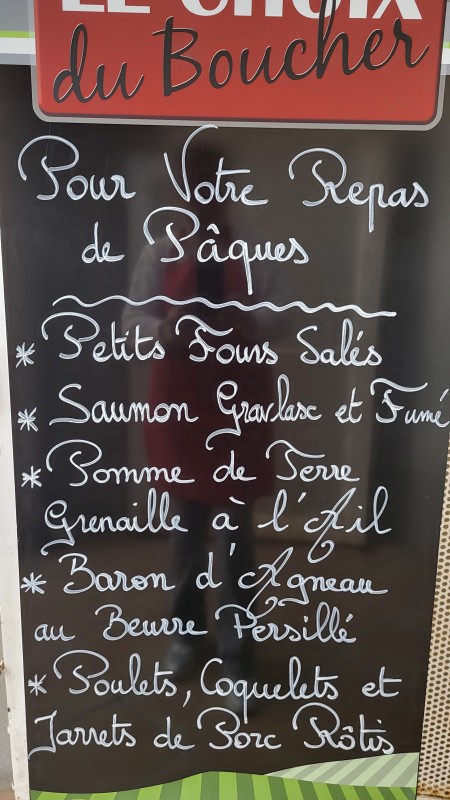 LE CHOIX
du Boucher
Pour Votre Repas
de Pâques
* Petits Fours Salés
* Saumon Gravlax et Fumé
* Pomme de Terre
Grenaille à l'Ail
* Baron d'Agneau
au Beurre Persillé
* Poulets, Coquelets et
Jarrets de Porc Rôtis